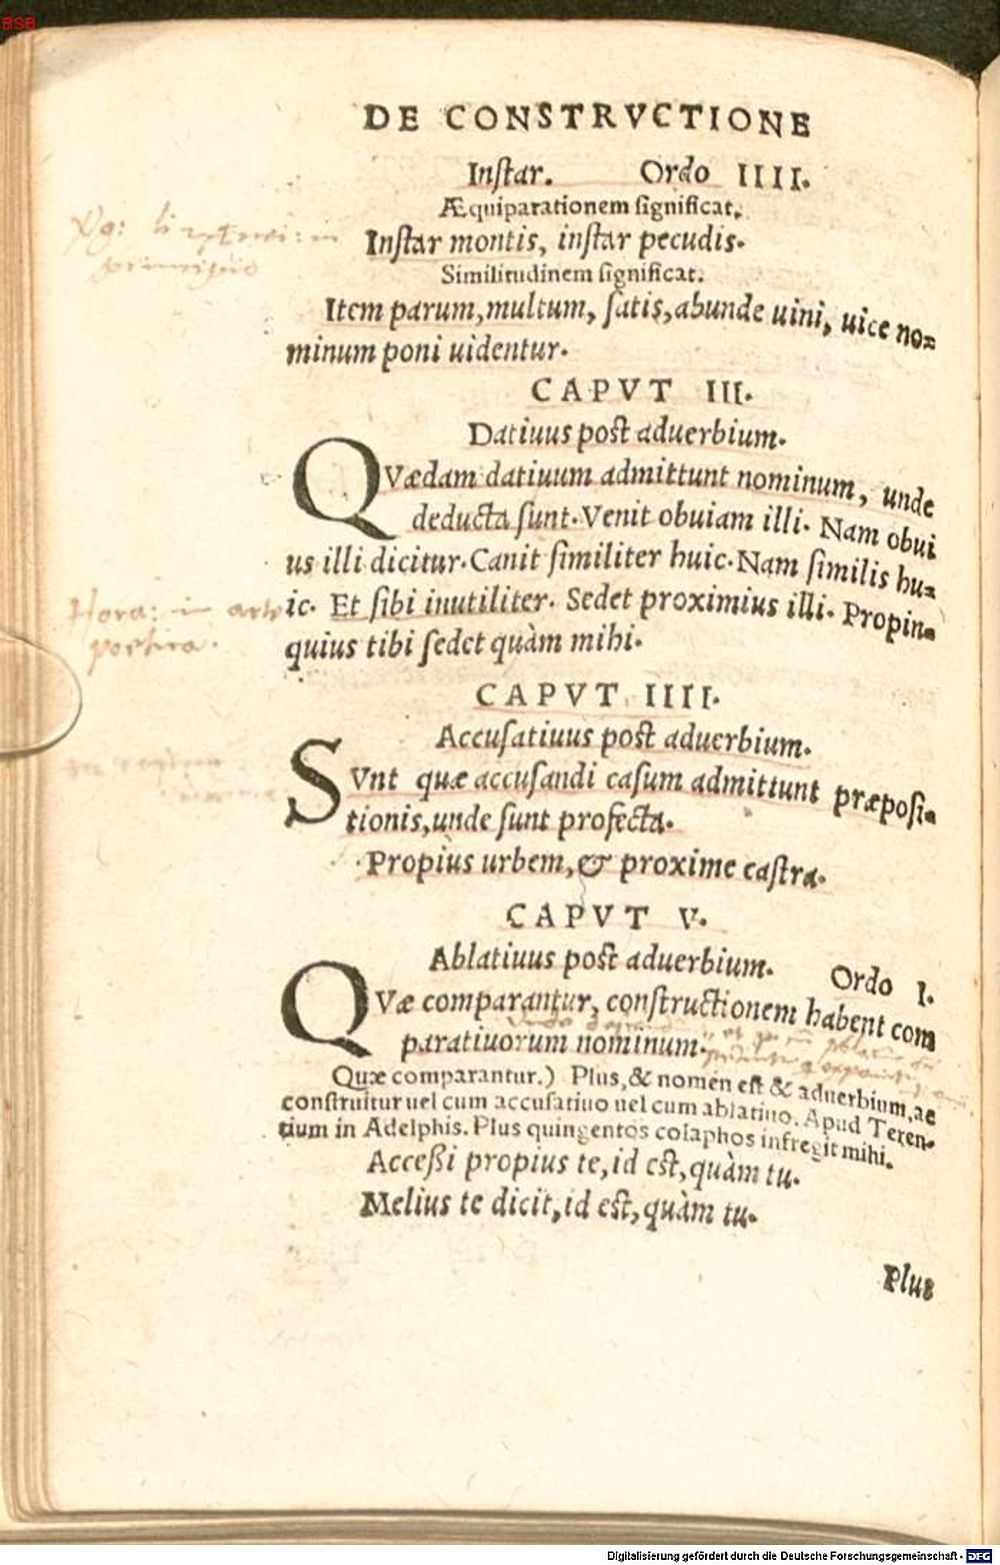 BSB
DE CONSTRVCTIONE
Instar. Ordo IIII.
Æquiparationem significat.
Instar montis, instar pecudis.
Similitudinem significat.
Item parum, multum, satis, abunde uini, uice no=
minum poni uidentur.
CAPVT III.
Datiuus post aduerbium.
QVædam datiuum admittunt nominum, unde
deducta sunt. Venit obuiam illi. Nam obui
us illi dicitur. Canit similiter huic. Nam similis hu=
ic. Et sibi inutiliter. Sedet proximius illi. Propin=
quius tibi sedet quàm mihi.
Hora: in arte
poetica.
CAPVT IIII.
Accusatiuus post aduerbium.
SVnt quæ accusandi casum admittunt præposi=
tionis, unde sunt profecta.
Propius urbem, & proxime castra.
CAPVT V.
Ablatiuus post aduerbium. Ordo I.
QVæ comparantur, constructionem habent com
paratiuorum nominum.
Quæ comparantur.) Plus, & nomen est & aduerbium, ac
construitur uel cum accusatiuo uel cum ablatiuo. Apud Teren=
tium in Adelphis. Plus quingentos colaphos infregit mihi.
Accessi propius te, id est, quàm tu.
Melius te dicit, id est, quàm tu.
Plus
Digitalisierung gefördert durch die Deutsche Forschungsgemeinschaft - DFG